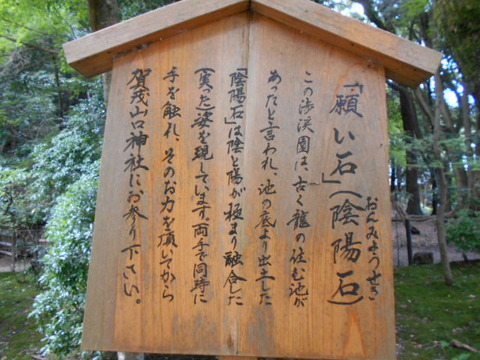 「願い石」(陰陽石)
おんみょうせき
この渉渓園は、古く龍の住む池が
あったと言われ、池の底より出土した
「陰陽石」は陰と陽が極まり融合した
(寄った)姿を現しています。両手で同時に
手を触れ、そのお力を頂いてから
賀茂山口神社にお参り下さい。